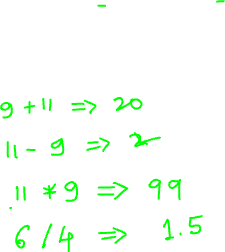 9 + 11 => 20
11 - 9 => 2
11 * 9 => 99
6 / 4 => 1.5